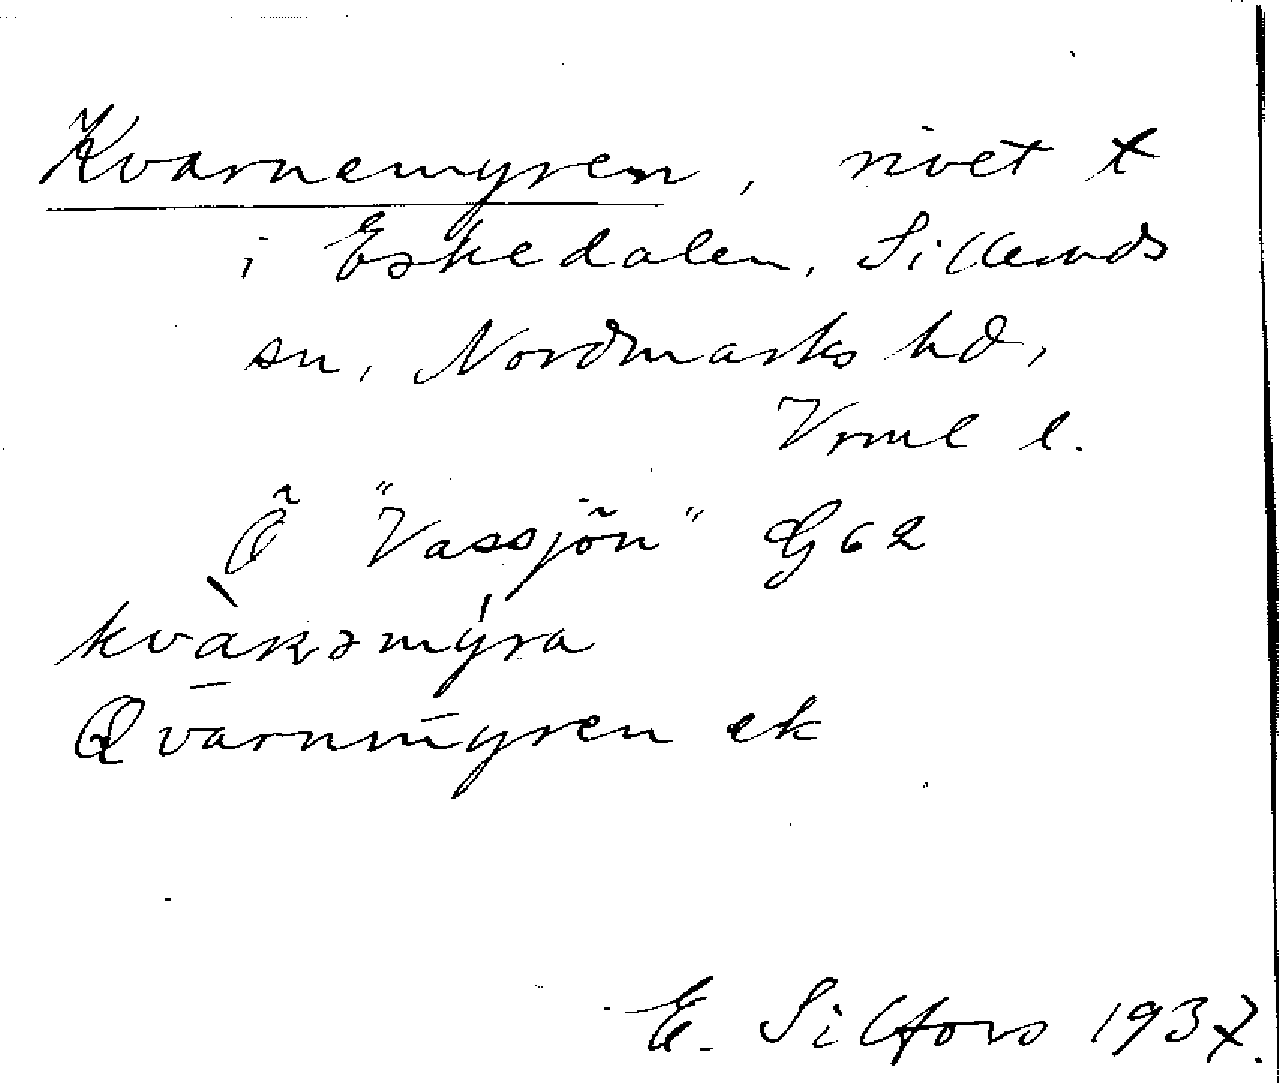 Kvarnemyren, rivet t
i Eskedalen, Silleruds
sn, Nordmarks hd,
Vrml l.
Ö "Vassjön" G62
Qvarnmyren ek
E. Silfors 1937.